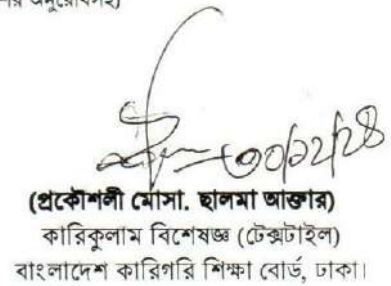 ৩০/১২/২৪
(প্রকৌশলী মোসা. ছালমা আক্তার)
কারিকুলাম বিশেষজ্ঞ (টেক্সটাইল)
বাংলাদেশ কারিগরি শিক্ষা বোর্ড, ঢাকা।